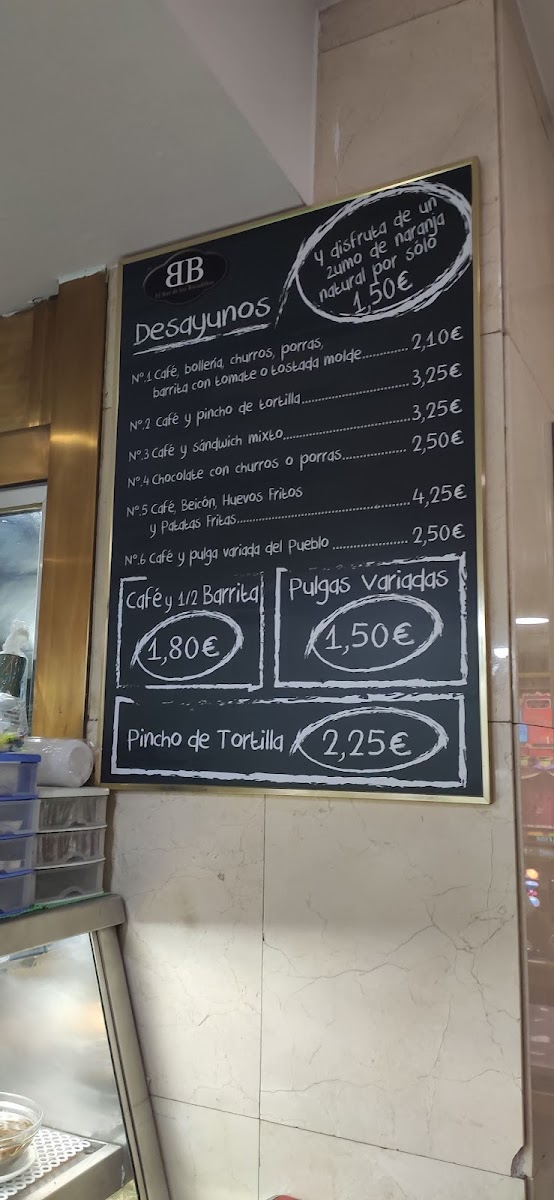 BB
Desayunos
Y disfruta de un
zumo de naranja
natural por sólo
1,50€
Nº.1 Café, bollería, churros, porras,
barrita con tomate o tostada molde............ 2,10€
Nº.2 Café y pincho de tortilla............................ 3,25€
Nº.3 Café y sándwich mixto................................ 3,25€
Nº.4 Chocolate con churros o porras................ 2,50€
Nº.5 Café, Beicón, Huevos Fritos
y Patatas Fritas............................................ 4,25€
Nº.6 Café y pulga variada del Pueblo .................. 2,50€
Café y 1/2 Barrita
1,80€
Pulgas Variadas
1,50€
Pincho de Tortilla
2,25€